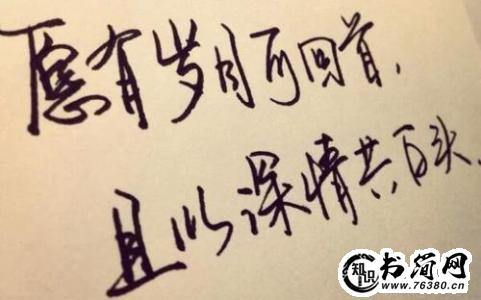 愿有岁月可回首,
且以深情共白头.
知识
书简网
www.76380.cn